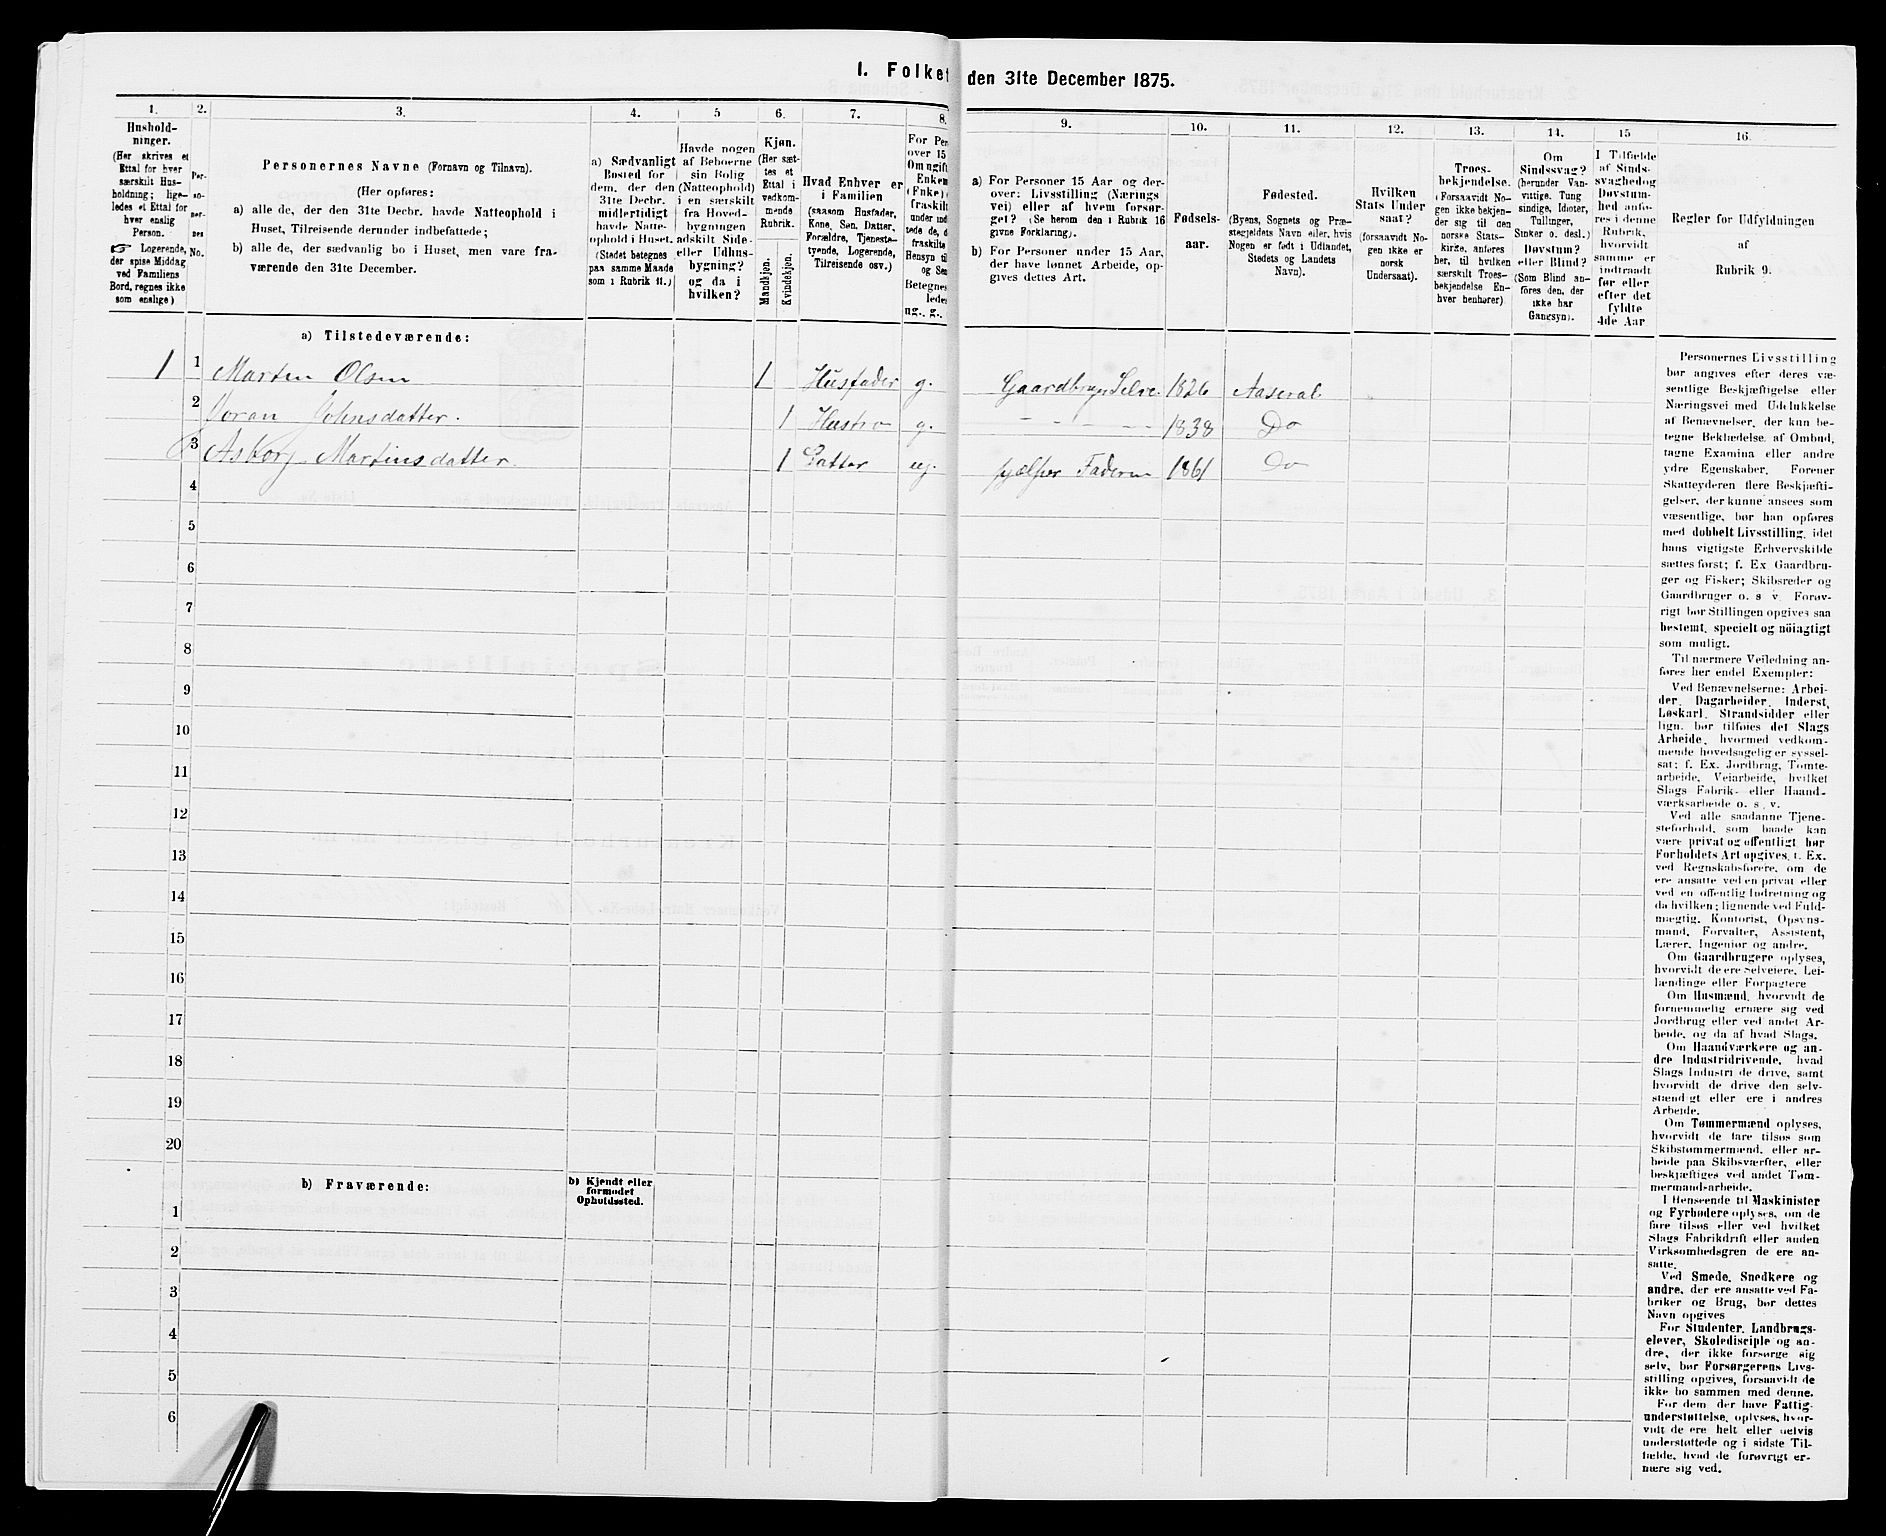 1. Folket den 31te December 1875.
1. 2. 3. 4. 5 6. 7. 8. 9. 10. 11. 12. 13. 14. 15 16.
Hushold-
ninger.
(Her skrives et
Ettal for hver
særskilt Hus-
holdning; lige-
ledes et Ettal for
hver enslig
Person.
☞ Logerende,
der spise Middag
ved Familiens
Bord, regnes ikke
som enslige)
Per-
so-
ner-
nes
No.
Personernes Navne (Fornavn og Tilnavn).
(Her opføres:
a) alle de, der den 31te Decbr. havde Natteophold i
Huset, Tilreisende derunder indbefattede;
b) alle de, der sædvanlig bo i Huset, men vare fra-
værende den 31te December.
a) Sædvanligt
Bosted for
dem, der den
31te Decbr.
midlertidigt
havde Natte-
ophold i Huset.
(Stedet betegnes
paa samme Maade
som i Rubrik 11.)
Havde nogen
af Beboerne
sin Bolig
(Natteophold)
i en særskilt
fra Hoved-
bygningen
adskilt Side-
eller Udhus-
bygning?
og da i
hvilken?
Kjøn.
(Her sæt-
tes et
Ettal i
vedkom-
mende
Rubrik.
Mandkjøn.
Kvindekjøn.
Hvad Enhver er
i Familien
(saasom Husfader,
Kone, Søn, Datter,
Forældre, Tjeneste-
tyende, Logerende,
Tilreisende osv.)
For Per
over 15
Om ugift
Enkem
(Enke)
fraskilt
under ind
tede de,
fraskilte
Hensyn til
og Se
Betegnes
ledes
ug., g.,
a) For Personer 15 Aar og der-
over: Livsstilling (Nærings
vei) eller af hvem forsør-
get? (Se herom den i Rubrik 16
givne Forklaring).
b) For Personer under 15 Aar,
der have lønnet Arbeide, op-
gives dettes Art.
Fødsels-
aar.
Fødested.
(Byens, Sognets og Præ-
stegjeldets Navn eller, hvis
Nogen er født i Udlandet,
Stedets og Landets
Navn).
Hvilken
Stats Under
saat?
(forsaavidt No-
gen ikke er
norsk
Undersaat).
Troes-
bekjendelse.
(Forsaavidt No-
gen ikke bekjen-
der sig til den
norske Stats-
kirke, anføres
her, til hvilken
særskilt Troes-
bekjendelse En-
hver henhører).
Om
Sindssvag?
(herunder Van-
vittige, Tung
sindige, Idioter,
Tullinger,
Sinker o. desl.)
Døvstum?
eller Blind?
(Som Blind an-
føres den, der
ikke har
Gangsyn).
I Tilfælde
af Sinds-
svaghed og
Døvstum-
hed anfø-
res i denne
Rubrik,
hvorvidt
samme er
indtraadt
før eller
efter det
fyldte
4de Aar
Regler for Udfyldningen
af
Rubrik 9.
a) Tilstedeværende:
1 1 Marten Olsen 1 Husfader g. Gaardbruger Selve. 1826 Aaseral
2 Joran Johnsdatter. 1 Hustro g. - - - - 1838 Do
3 Asborg Martinsdatter. 1 Datter ug. hjælper Faderen 1861 Do
4
5
6
7
8
9
10
11
12
13
14
15
16
17
18
19
20
b) Fraværende:
b) Kjendt eller
formodet
Opholdssted.
1
2
3
4
5
6
Personernes Livsstilling
bør angives efter deres væ-
sentlige Beskjæftigelse eller
Næringsvei med Udelukkelse
af Benævnelser, der kun be-
tegne Beklædelse af Ombud,
tagne Examina eller andre
ydre Egenskaber. Forener
Skatteyderen flere Beskjæfti-
gelser, der kunne ansees som
væsentlige, bør han opføres
med dobbelt Livsstilling, idet
hans vigtigste Erhvervskilde
sættes først; f. Ex Gaardbru-
ger og Fisker; Skibsreder og
Gaardbruger o. s v. Forøv-
rigt bør Stillingen opgives saa
bestemt, specielt og nöiagtigt
som muligt.
Til nærmere Veiledning an-
føres her endel Exempler:
Ved Benævnelserne: Arbei-
der, Dagarbeider, Inderst,
Løskarl, Strandsidder eller
lign. bør tilføres det Slags
Arbeide, hvormed vedkom-
mende hovedsagelig er syssel-
sat; f. Ex. Jordbrug, Tomte-
arbeide, Veiarbeide, hvilket
Slags Fabrik- eller Haand-
værksarbeide o. s, v.
Ved alle saadanne Tjene-
steforhold, som baade kan
være privat og offentligt bør
Forholdets Art opgives, f. Ex.
ved Regnskabsførere, om de
ere ansatte ved en privat eller
ved en offentlig Indretning og
da hvilken; lignende ved Fuld-
mægtig, Kontorist, Opsyns-
mand, Forvalter, Assistent,
Lærer, Ingeniør og andre.
Om Gaardbrugere oplyses,
hvorvidt de ere Selveiere, Lei-
lændinge eller Forpagtere
Om Husmænd, hvorvidt de
fornemmelig ernære sig ved
Jordbrug eller ved andet Ar-
beide, og da af hvad Slags.
Om Haandværkere og an-
dre Industridrivende, hvad
Slags Industri de drive, samt
hvorvidt de drive den selv-
stændigt eller ere i andres
Arbeide.
Om Tømmermænd oplyses,
hvorvidt de fare tilsøs som
Skibstømmermænd, eller ar-
beide paa Skibsværfter, eller
beskjæftiges ved andet Tøm-
mermandsarbeide.
I Henseende til Maskinister
og Fyrbødere oplyses, om de
fare tilsøs eller ved hvilket
Slags Fabrikdrift eller anden
Virksomhedsgren de ere an-
satte.
Ved Smede, Snedkere og
andre, der ere ansatte ved Fa-
briker og Brug, bør dettes
Navn opgives
For Studenter, Landbrugs-
elever, Skoledisciple og an-
dre, der ikke forsørge sig
selv, bør Forsørgerens Livs-
stilling opgives, forsaavidt de
ikke bo sammen med denne.
For dem, der have Fattig-
understøttelse, oplyses, hvor-
vidt de ere helt eller delvis
understøttede og i sidste Til-
fælde, hvad de forøvrigt er-
nære sig ved.